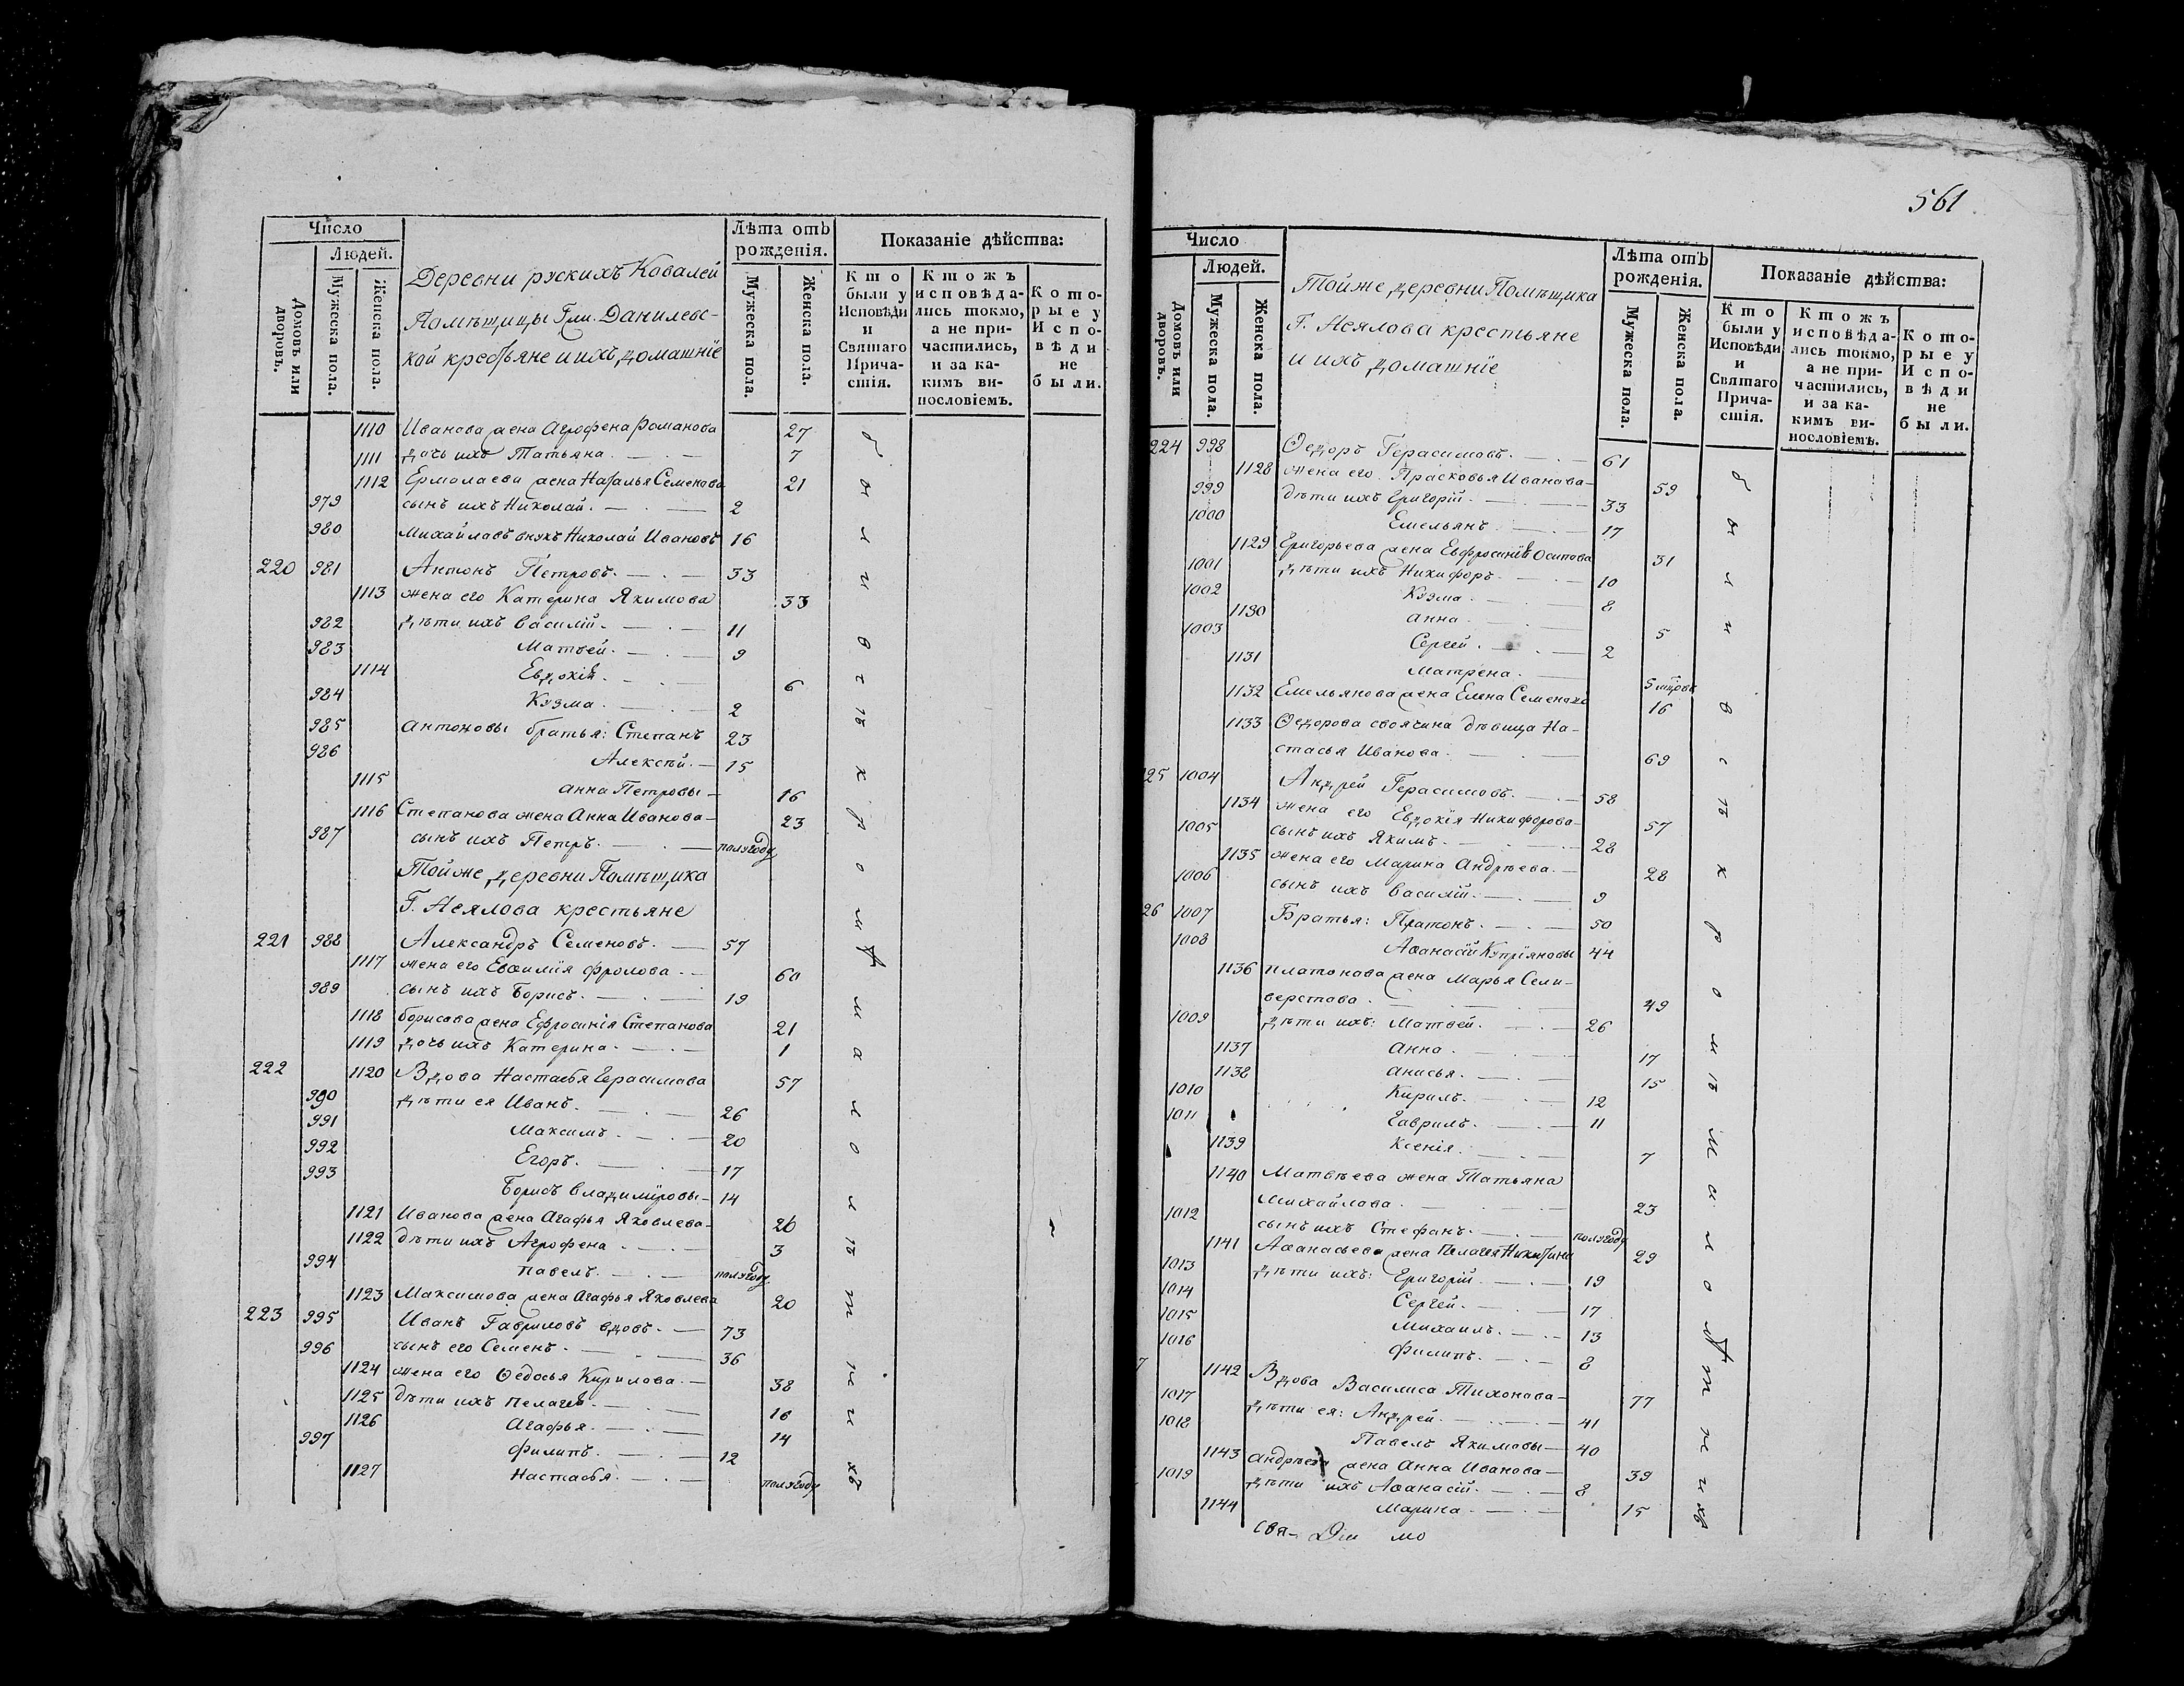 561
Число
Людей.
Домовъ или дворовъ.
Мужеска пола.
Женска пола.
Деревни рускихъ Ковалей
Помѣщицы Гжи. Данилевс-
кой крестьяне и ихъ домашніе
Лѣта отъ рожденія.
Мужеска пола.
Женска пола.
Показаніе дѣйства:
Кто были у Исповѣди и Святаго Причастія.
Ктожъ исповѣдались токмо, а не причастились, и за какимъ винословіемъ.
Которые у Исповѣди не были.
1110 Иванова жена Агрофена Романова 27
1111 дочь ихъ Татьяна 7
1112 Ермолаева жена Наталья Семенова 21
979 сынъ ихъ Николай. 2
980 Михайловъ внукъ Николай Ивановъ 16
220 981 Антонъ Петровъ. 33
1113 жена его Катерина Якимова 33
982 дѣти ихъ Василій. 11
983 Матвей. 9
1114 Евдокія. 6
984 Кузма. 2
985 Антоновы братья: Степанъ 23
986 Алексѣй. 15
1115 Анна Петровы 16
1116 Степанова жена Анна Иванова 23
987 сынъ ихъ Петръ. полугоду
Тойже деревни Помѣщика
Г. Неялова крестьяне
221 988 Александръ Семеновъ. 57
1117 жена его Евѳимія Фролова 60
989 сынъ ихъ Борисъ. 19
1118 Борисова жена Ефросинія Степанова 21
1119 дочь ихъ Катерина. 1
222 1120 Вдова Настасья Герасимова 57
990 дѣти ея Иванъ. 26
991 Максимъ 20
992 Егоръ. 17
993 Борисъ Владимировы 14
1121 Иванова жена Агафья Яковлева 26
1122 дѣти ихъ Агрофена 3
994 Павелъ. полугоду
1123 Максимова жена Агафья Яковлева 20
223 995 Иванъ Гавриловъ вдовъ. 73
996 сынъ его Семенъ 36
1124 жена его Ѳедосья Кирилова. 38
1125 дѣти ихъ Пелагея. 16
1126 Агафья. 14
997 Филипъ. 12
1127 Настасья. полугоду
Число
Людей.
Домовъ или дворовъ.
Мужеска пола.
Женска пола.
Тойже деревни Помѣщика
Г. Неялова крестьяне
и ихъ домашніе
Лѣта отъ рожденія.
Мужеска пола.
Женска пола.
Показаніе дѣйства:
Кто были у Исповѣди и Святаго Причастія.
Ктожъ исповѣдались токмо, а не причастились, и за какимъ винословіемъ.
Которые у Исповѣди не были.
224 998 Ѳедоръ Герасимовъ. 61
1128 жена его Прасковья Иванова 59
999 дѣти ихъ Григорій. 33
1000 Емельянъ 17
1129 Григорьева жена Евфросинія Осипова 31
1001 дѣти ихъ Никифоръ. 10
1002 Кузма 8
1130 Анна 5
1003 Сергей. 2
1131 Матрена
1132 Емельянова жена Елена Семенова 16
1133 Ѳедорова своячина дѣвица На-
стасья Иванова. 69
225 1004 Андрей Герасимовъ. 58
1134 жена его Евдокія Никифорова 57
1005 сынъ ихъ Якимъ. 28
1135 жена его Марина Андрѣева. 28
1006 сынъ ихъ Василій. 9
226 1007 Братья: Платонъ. 50
1008 Аѳанасій Купріяновы 44
1136 Платонова жена Марья Сели-
верстова 49
1009 дѣти ихъ: Матвей. 26
1137 Анна. 17
1138 Анисья. 15
1010 Кирилъ. 12
1011 Гаврилъ. 11
1139 Ксенія. 7
1140 Матвѣева жена Татьяна
Михайлова 23
1012 сынъ ихъ Стефанъ. полугоду
1141 Аѳанасьева жена Пелагея Никитина 29
1013 дѣти ихъ: Григорій 19
1014 Сергей. 17
1015 Михаилъ. 13
1016 Филипъ. 8
7 1142 Вдова Василиса Тихонова 77
1017 дѣти ея: Андрей. 41
1018 Павелъ Якимовы 40
1143 Андрѣева жена Анна Иванова 39
1019 дѣти ихъ Аѳанасій. 8
1144 Марина. 15